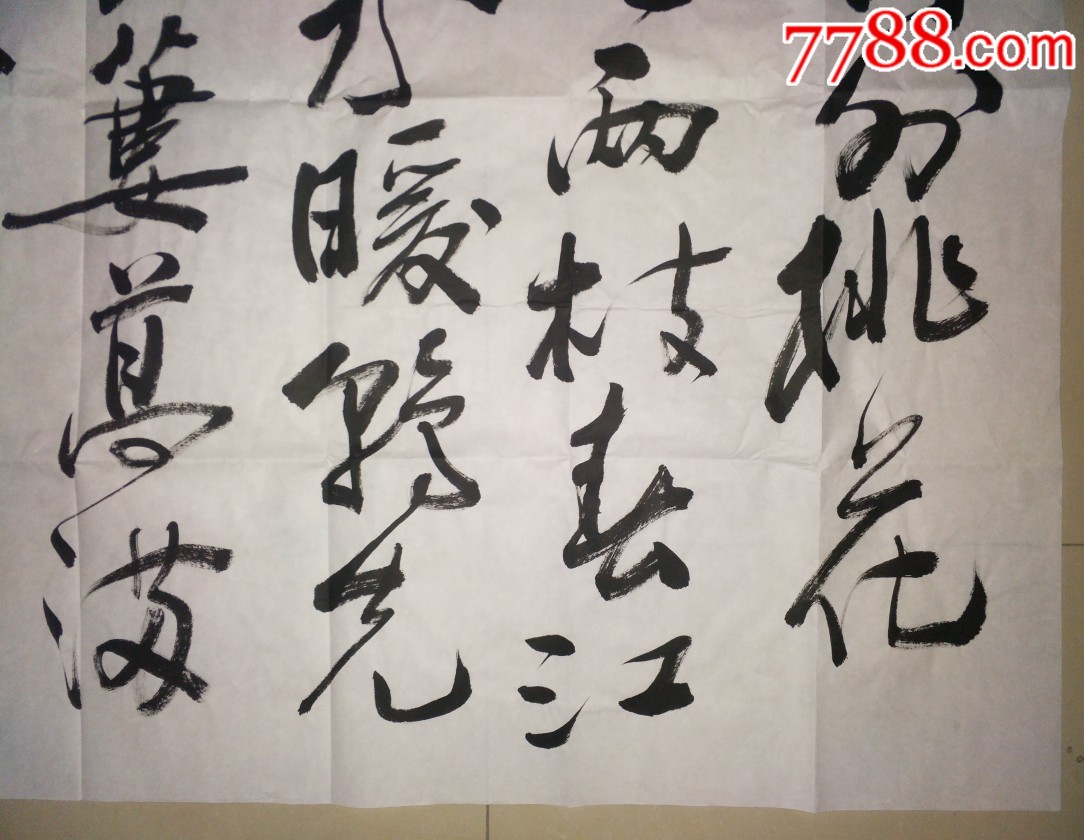 外桃花
两枝春江
水暖鸭先
蒌蒿满
7788.com